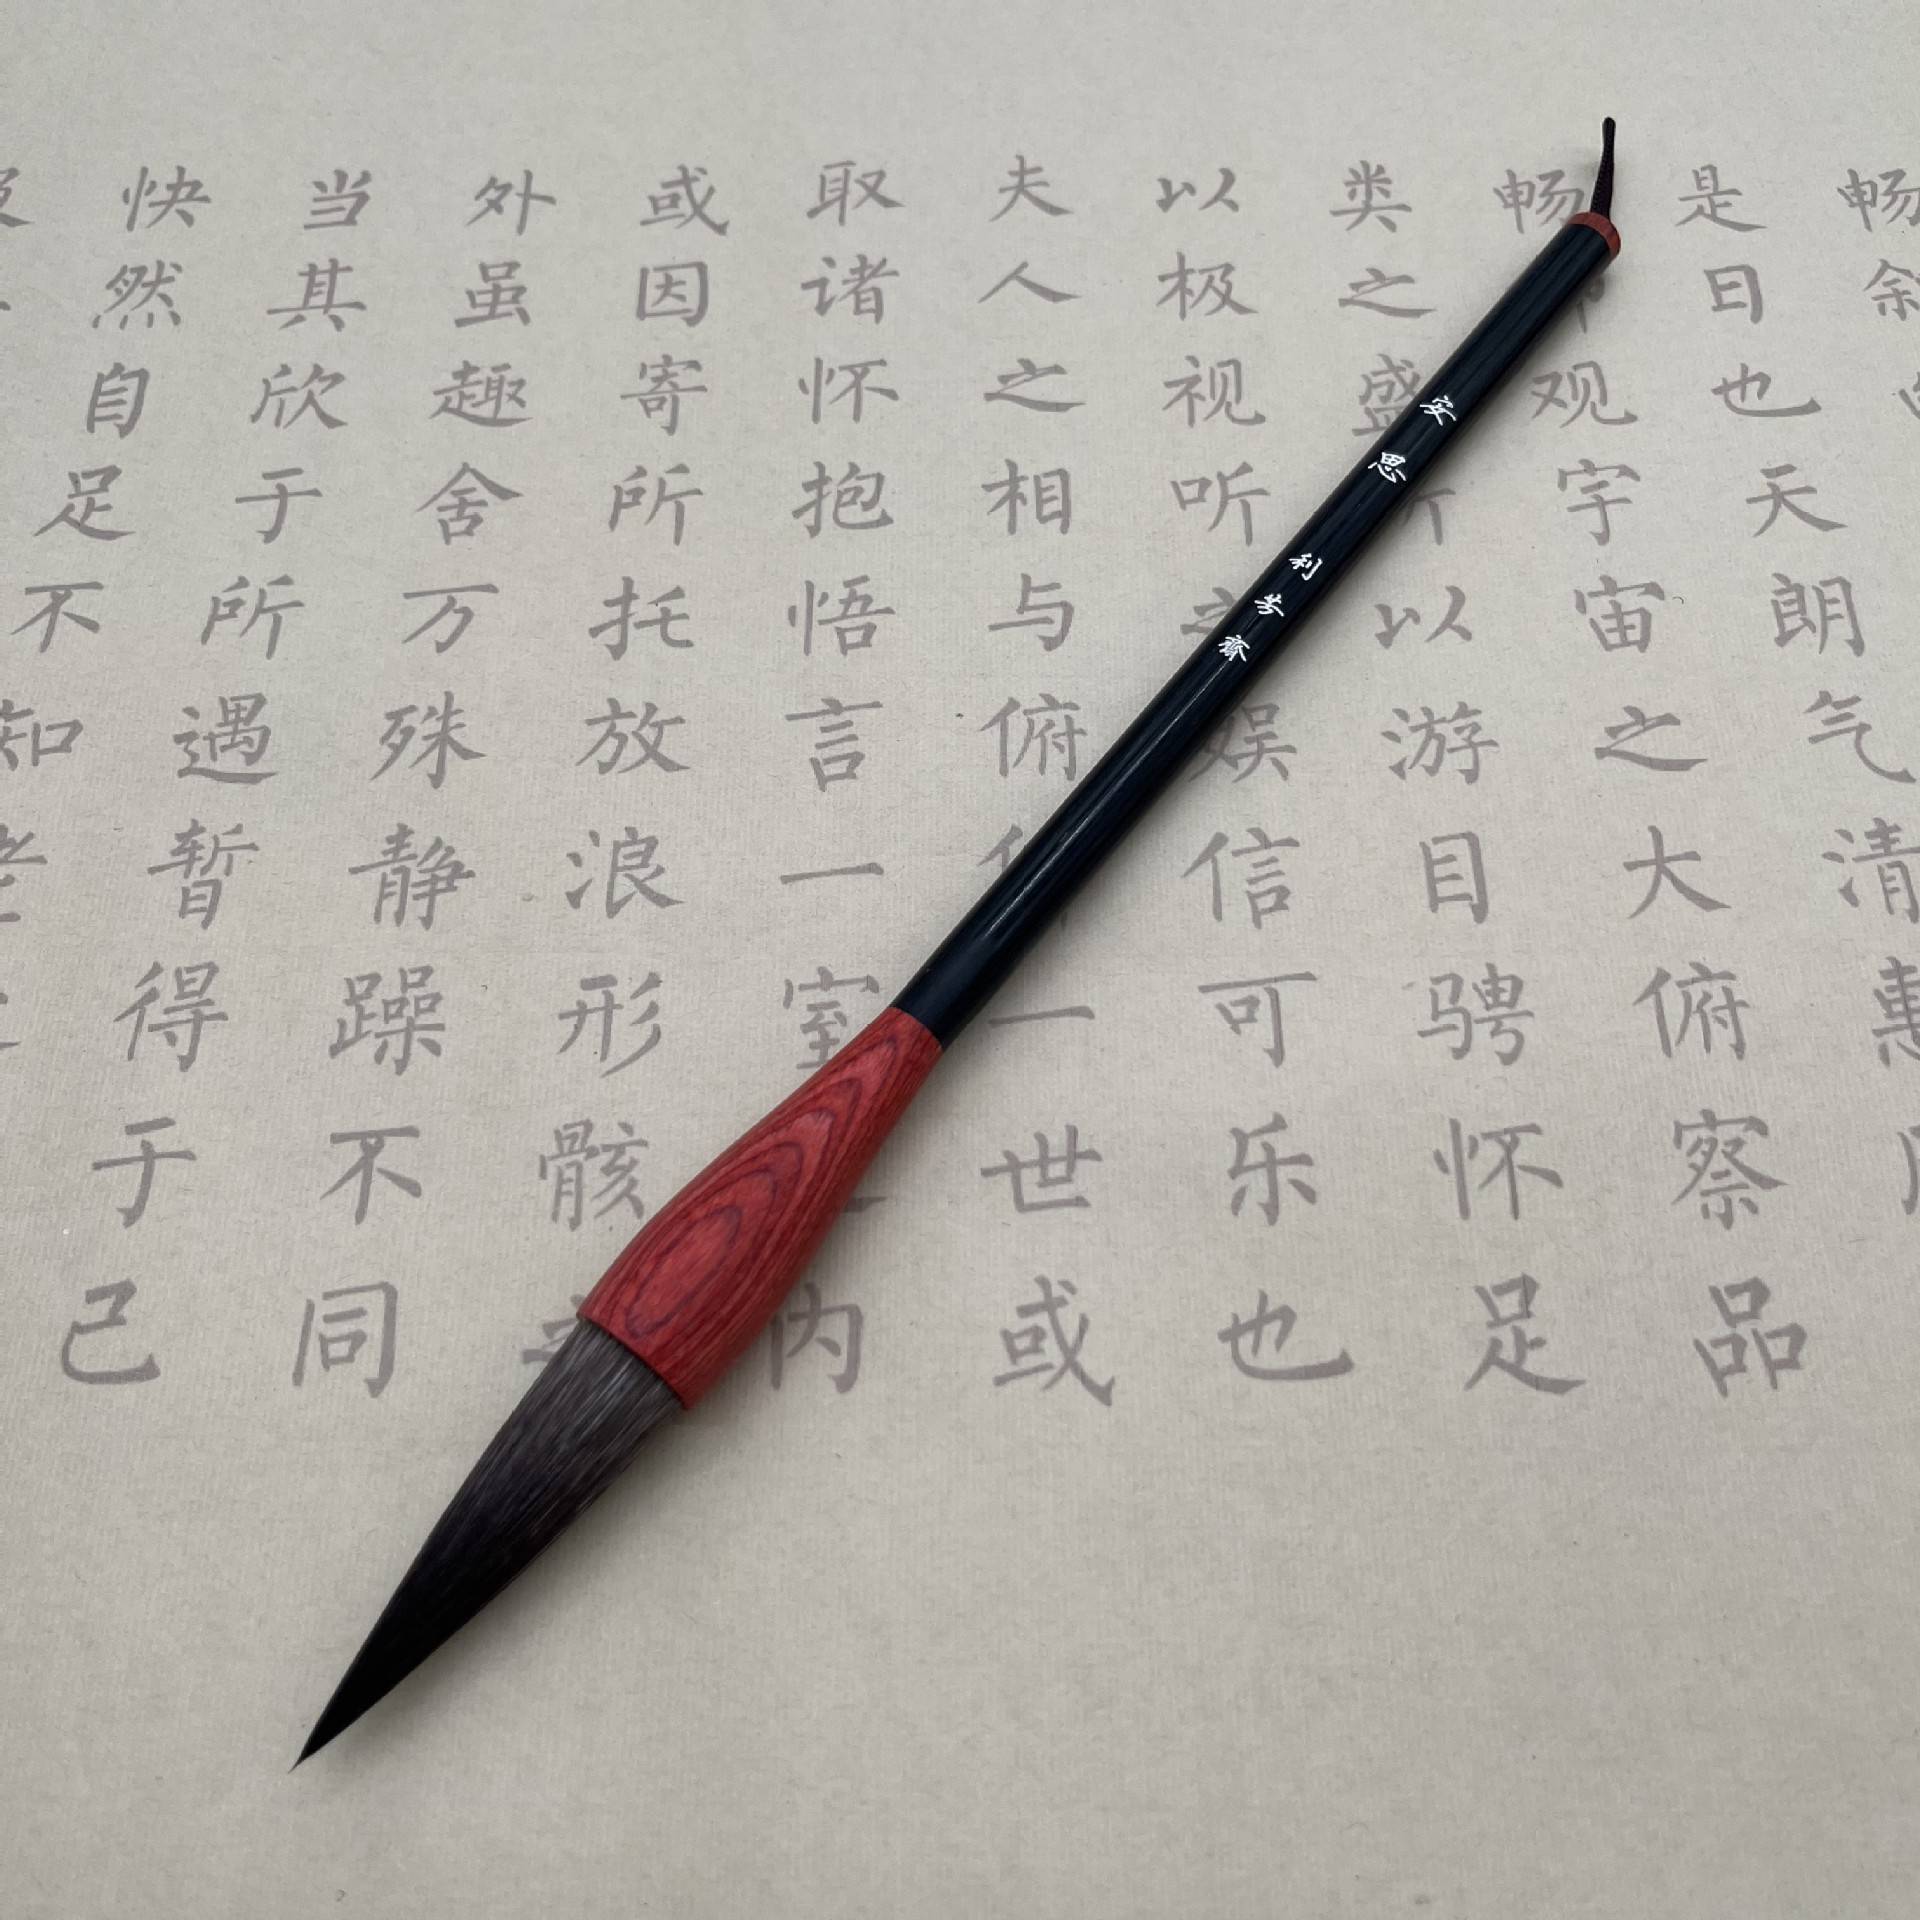 畅
是日也天朗气清惠
畅观宇宙之大俯察品
类之盛所以游目骋怀足
以极视听之娱信可乐也
夫人之相与俯一世或
取诸怀抱悟言一室内
或因寄所托放浪形骸之
外虽趣舍万殊静躁不同
当其欣于所遇暂得于己
快然自足不知
安思
利齋